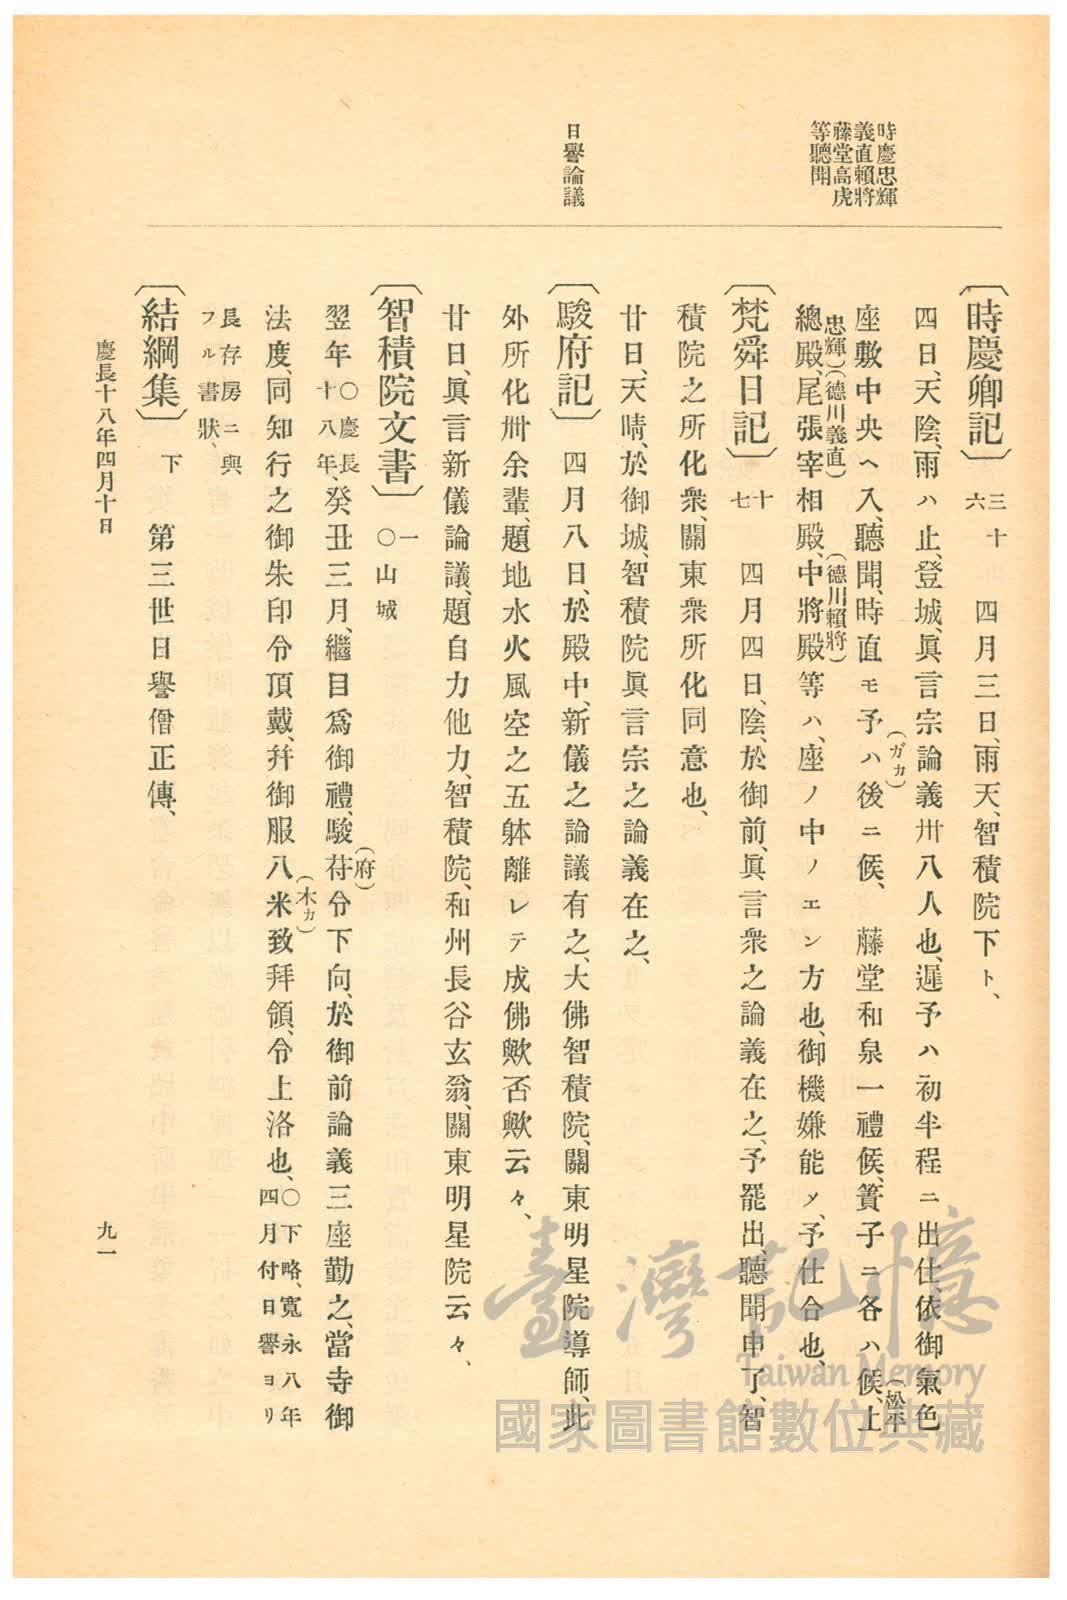 時慶忠輝
義直賴將
藤堂高虎
等聽聞
日譽論議
〔時慶卿記〕 三十六 四月三日、雨天、智積院下ト、
四日、天陰、雨ハ止、登城、眞言宗論義卅八人也、遲予ハ初半程ニ出仕、依御氣色
座敷中央ヘ入、聽聞、時直モ予ハ(ガカ)後ニ候、藤堂和泉一禮候、簀子ニ各ハ候、上
總殿、(松平忠輝)尾張宰相殿、(德川義直)中將殿(德川賴將)等ハ、座ノ中ノエン方也、御機嫌能メ、予仕合也、
〔梵舜日記〕 十七 四月四日、陰、於御前、眞言衆之論義在之、予罷出、聽聞申了、智
積院之所化衆、關東衆所化同意也、
廿日、天晴、於御城、智積院眞言宗之論義在之、
〔駿府記〕 四月八日、於殿中、新儀之論議有之、大佛智積院、關東明星院導師、此
外所化卅余輩、題地水火風空之五躰離レテ成佛歟否歟云々、
廿日、眞言新儀論議、題自力他力、智積院、和州長谷玄翁、關東明星院云々、
〔智積院文書〕 一 ○山城
翌年 ○慶長十八年、癸丑三月、繼目爲御禮、駿苻(府)令下向、於御前論義三座勤之、當寺御
法度、同知行之御朱印令頂戴、幷御服八米(木カ)致拜領、令上洛也、○下略、寬永八年四月付日譽ヨリ
長存房ニ與フル書狀、
〔結綱集〕 下 第三世日譽僧正傳、
慶長十八年四月十日
九一
臺灣記憶
Taiwan Memory
國家圖書館數位典藏